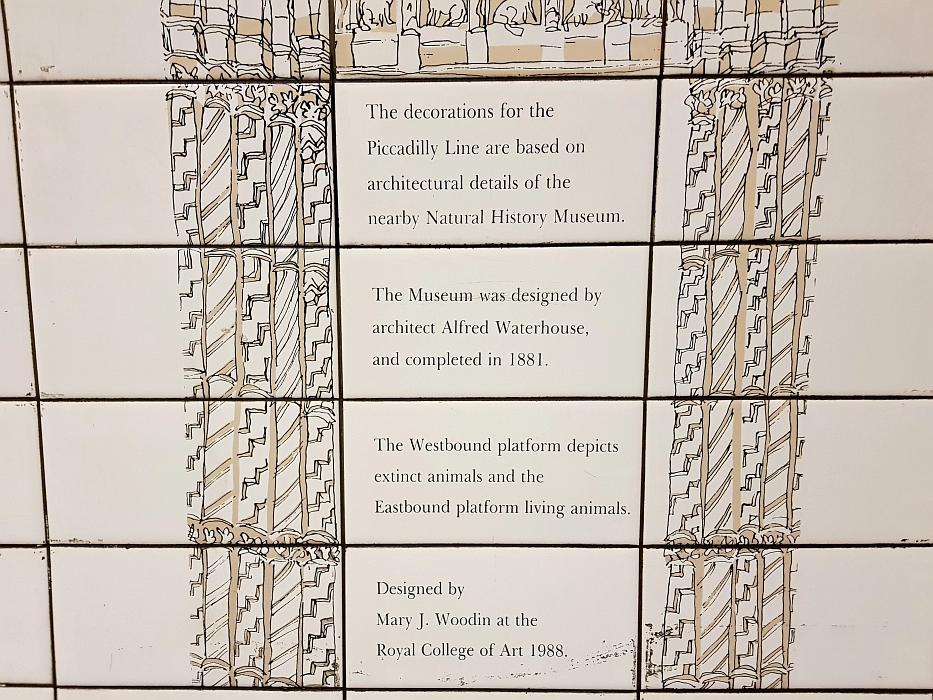 The decorations for the
Piccadilly Line are based on
architectural details of the
nearby Natural History Museum.
The Museum was designed by
architect Alfred Waterhouse,
and completed in 1881.
The Westbound platform depicts
extinct animals and the
Eastbound platform living animals.
Designed by
Mary J. Woodin at the
Royal College of Art 1988.